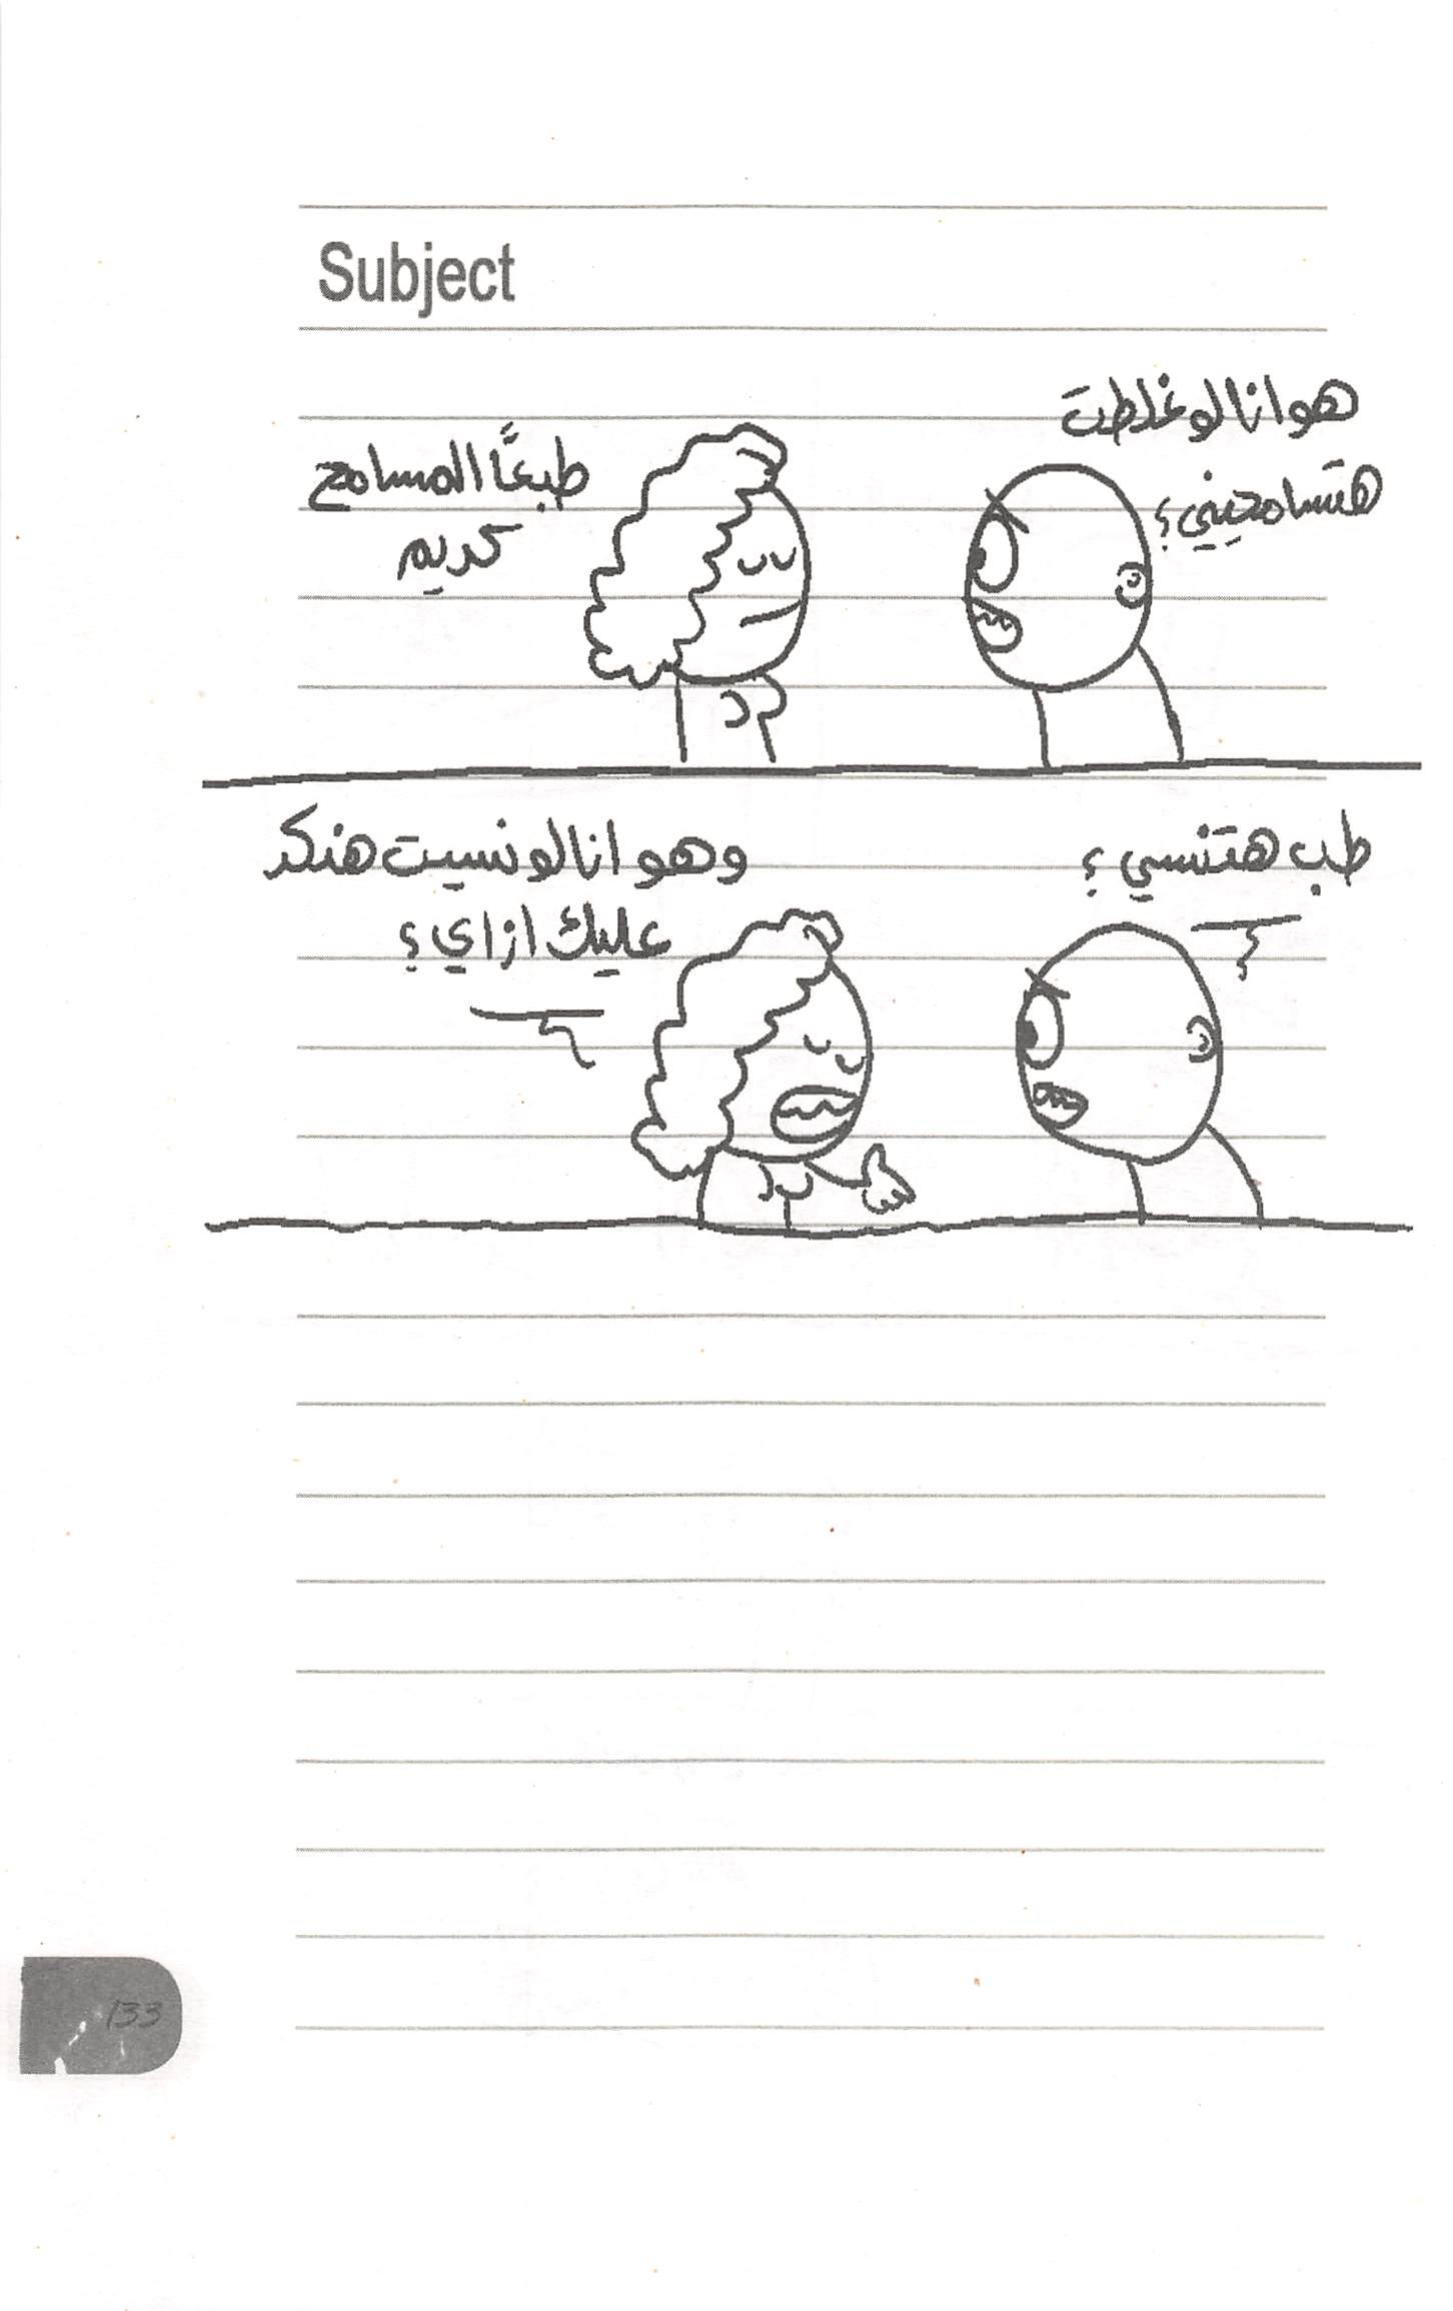 Subject
هو انا لو غلطت
هتسامحيني؟
طبعًا المسامح
كريم
طب هتنسي؟
وهو انا لو نسيت هنكد
عليك ازاي؟
133